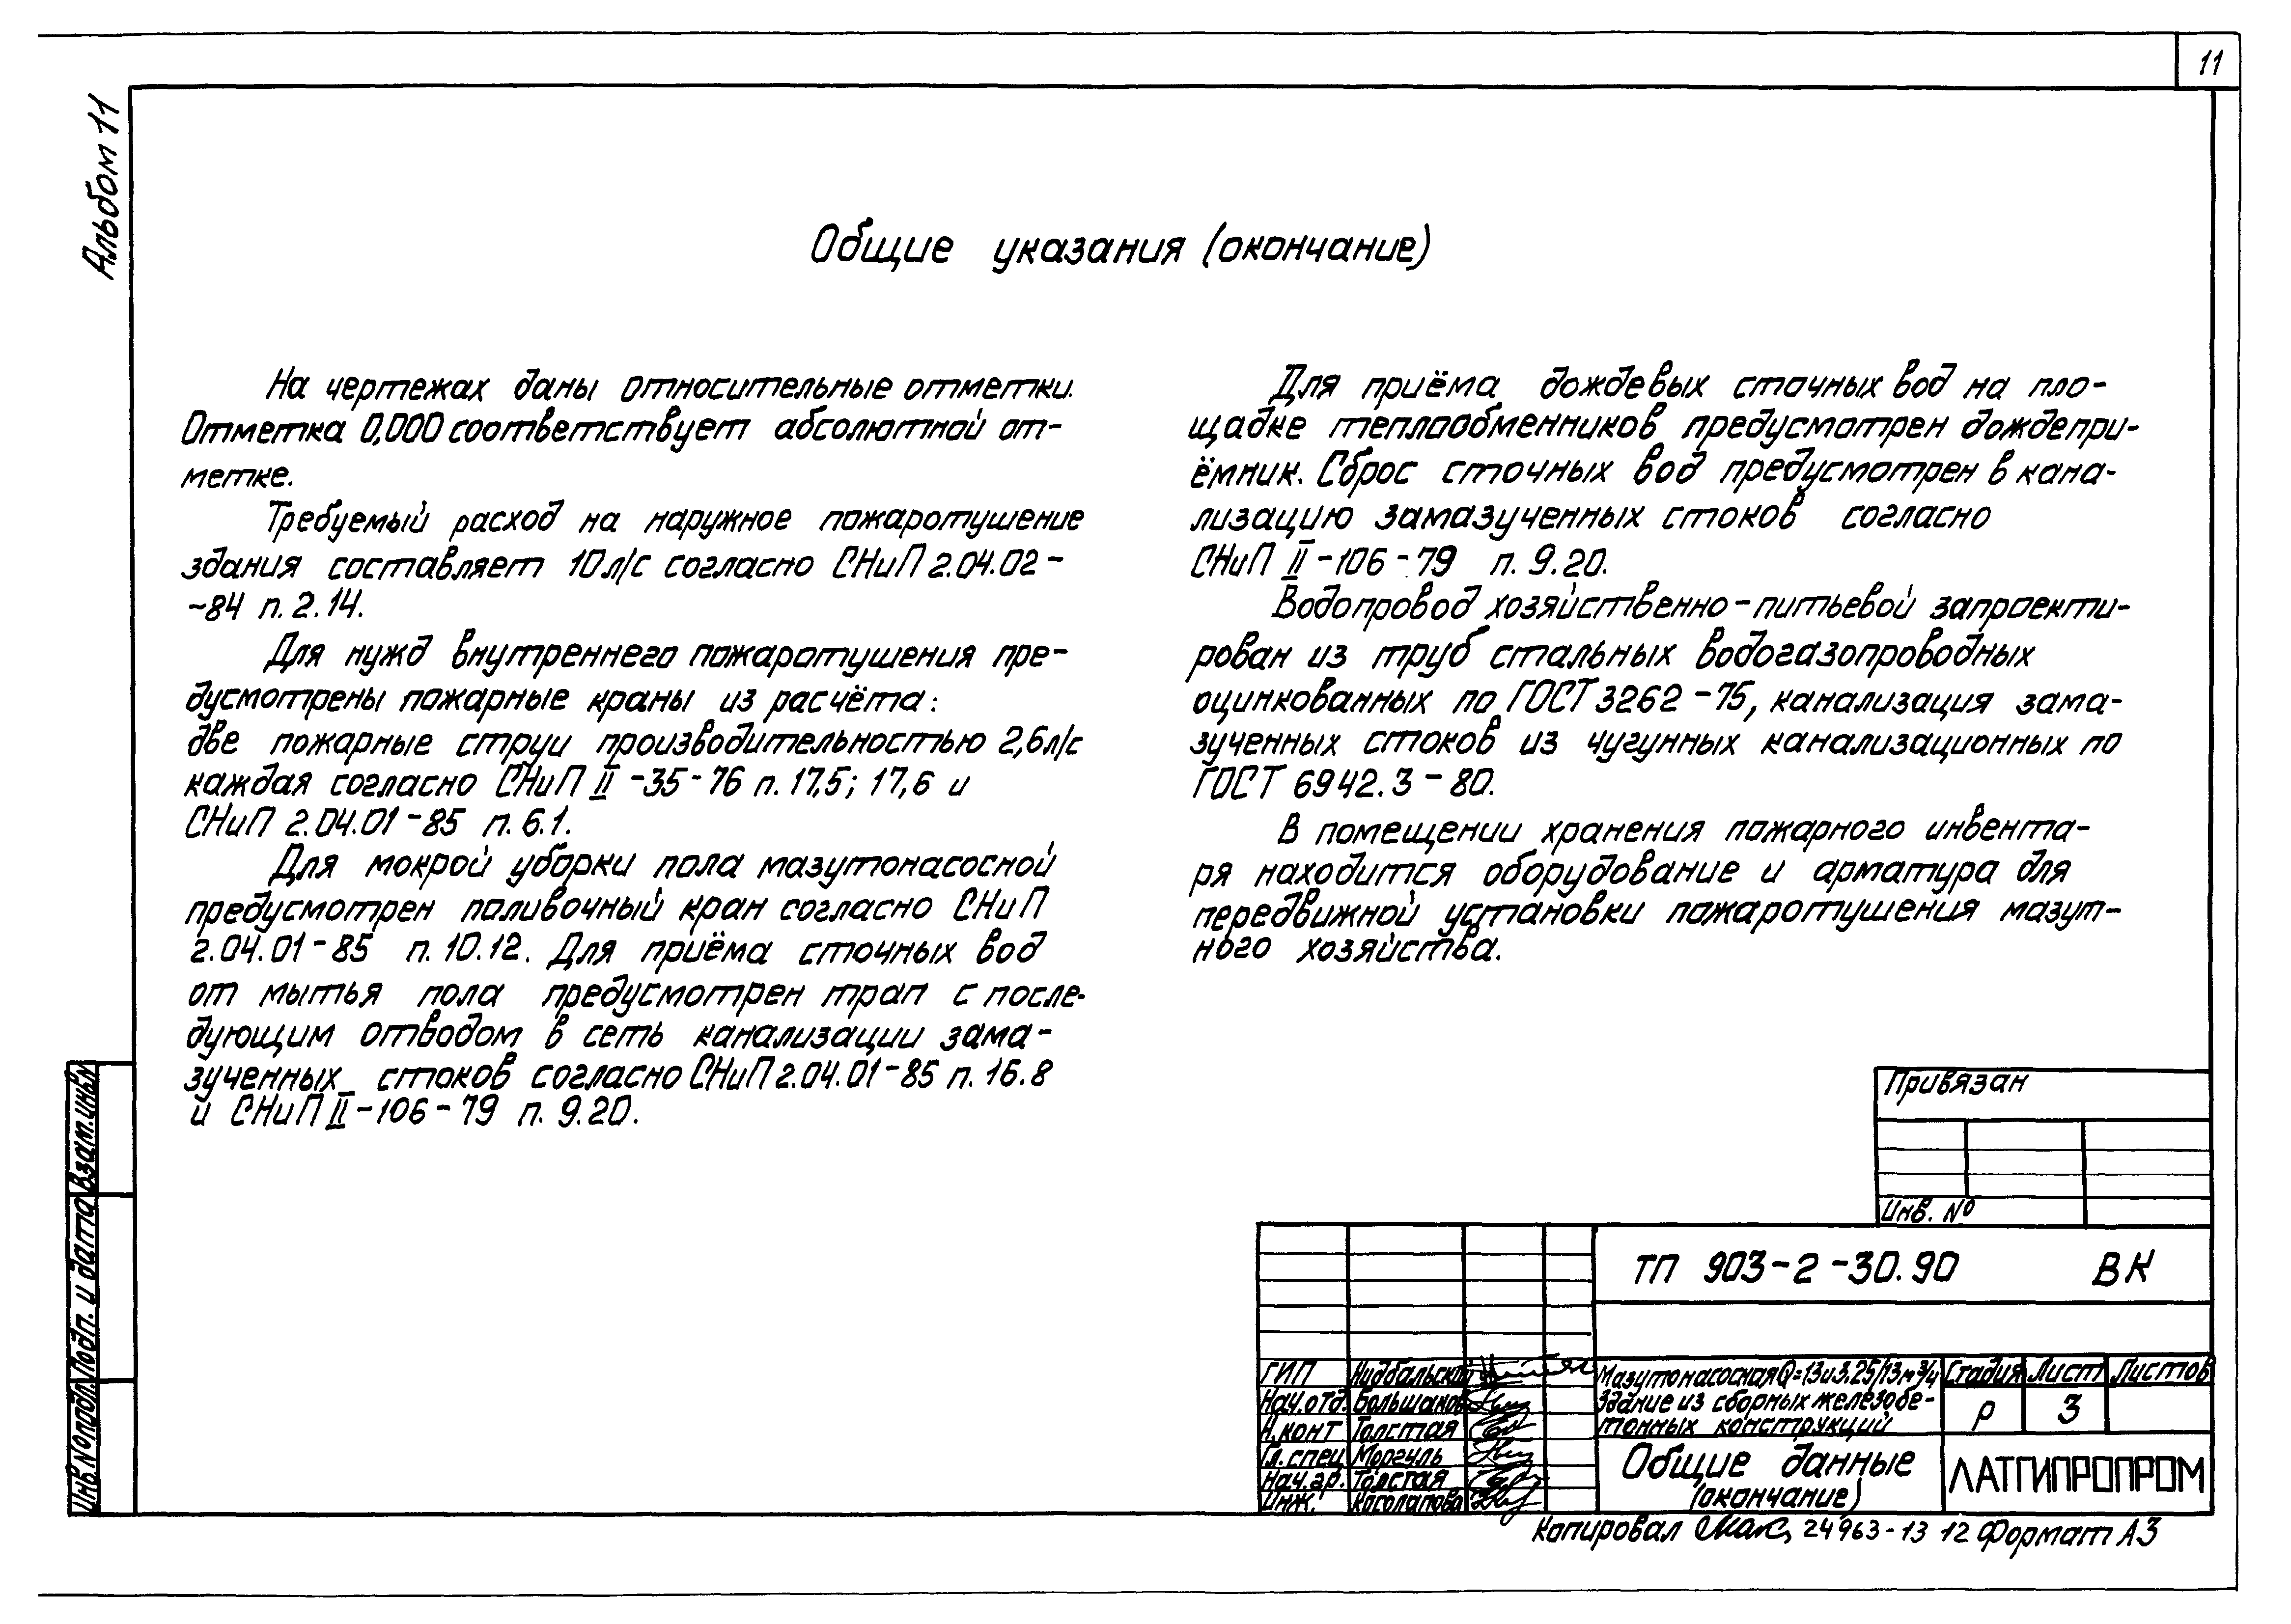 11
Альбом 11
Общие указания (окончание)
На чертежах даны относительные отметки.
Отметка 0,000 соответствует абсолютной от-
метке.
Требуемый расход на наружное пожаротушение
здания составляет 10 л/с согласно СНиП 2.04.02-
-84 п. 2.14.
Для нужд внутреннего пожаротушения пре-
дусмотрены пожарные краны из расчёта:
две пожарные струи производительностью 2,6 л/с
каждая согласно СНиП II-35-76 п. 17,5; 17,6 и
СНиП 2.04.01-85 п. 6.1.
Для мокрой уборки пола мазутонасосной
предусмотрен поливочный кран согласно СНиП
2.04.01-85 п. 10.12. Для приёма сточных вод
от мытья пола предусмотрен трап с после-
дующим отводом в сеть канализации зама-
зученных стоков согласно СНиП 2.04.01-85 п. 16.8
и СНиП II-106-79 п. 9.20.
Для приёма дождевых сточных вод на пло-
щадке теплообменников предусмотрен дождепри-
ёмник. Сброс сточных вод предусмотрен в кана-
лизацию замазученных стоков согласно
СНиП II-106-79 п. 9.20.
Водопровод хозяйственно-питьевой запроекти-
рован из труб стальных водогазопроводных
оцинкованных по ГОСТ 3262-75, канализация зама-
зученных стоков из чугунных канализационных по
ГОСТ 6942.3-80.
В помещении хранения пожарного инвента-
ря находится оборудование и арматура для
передвижной установки пожаротушения мазут-
ного хозяйства.
Привязан
Инв. №
ТП 903-2-30.90 ВК
ГИП
Нач.отд. Большаков
Н.конт Толстая
Гл.спец Моргуль
Нач.гр. Толстая
Инж. Косолапова
Мазутонасосная Q=13и3,25/13 м³/ч
Здание из сборных железобе-
тонных конструкций
Стадия Лист Листов
Р 3
Общие данные
(окончание)
ЛАТГИПРОПРОМ
Инв.№подл. Подп. и дата Взам.инв.№
Копировал 24963-13 12 Формат А3